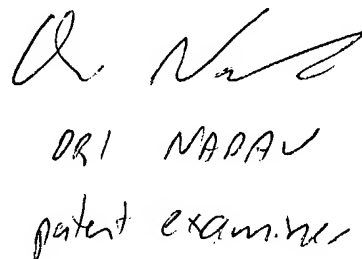 ORI NADAV
patent examiner